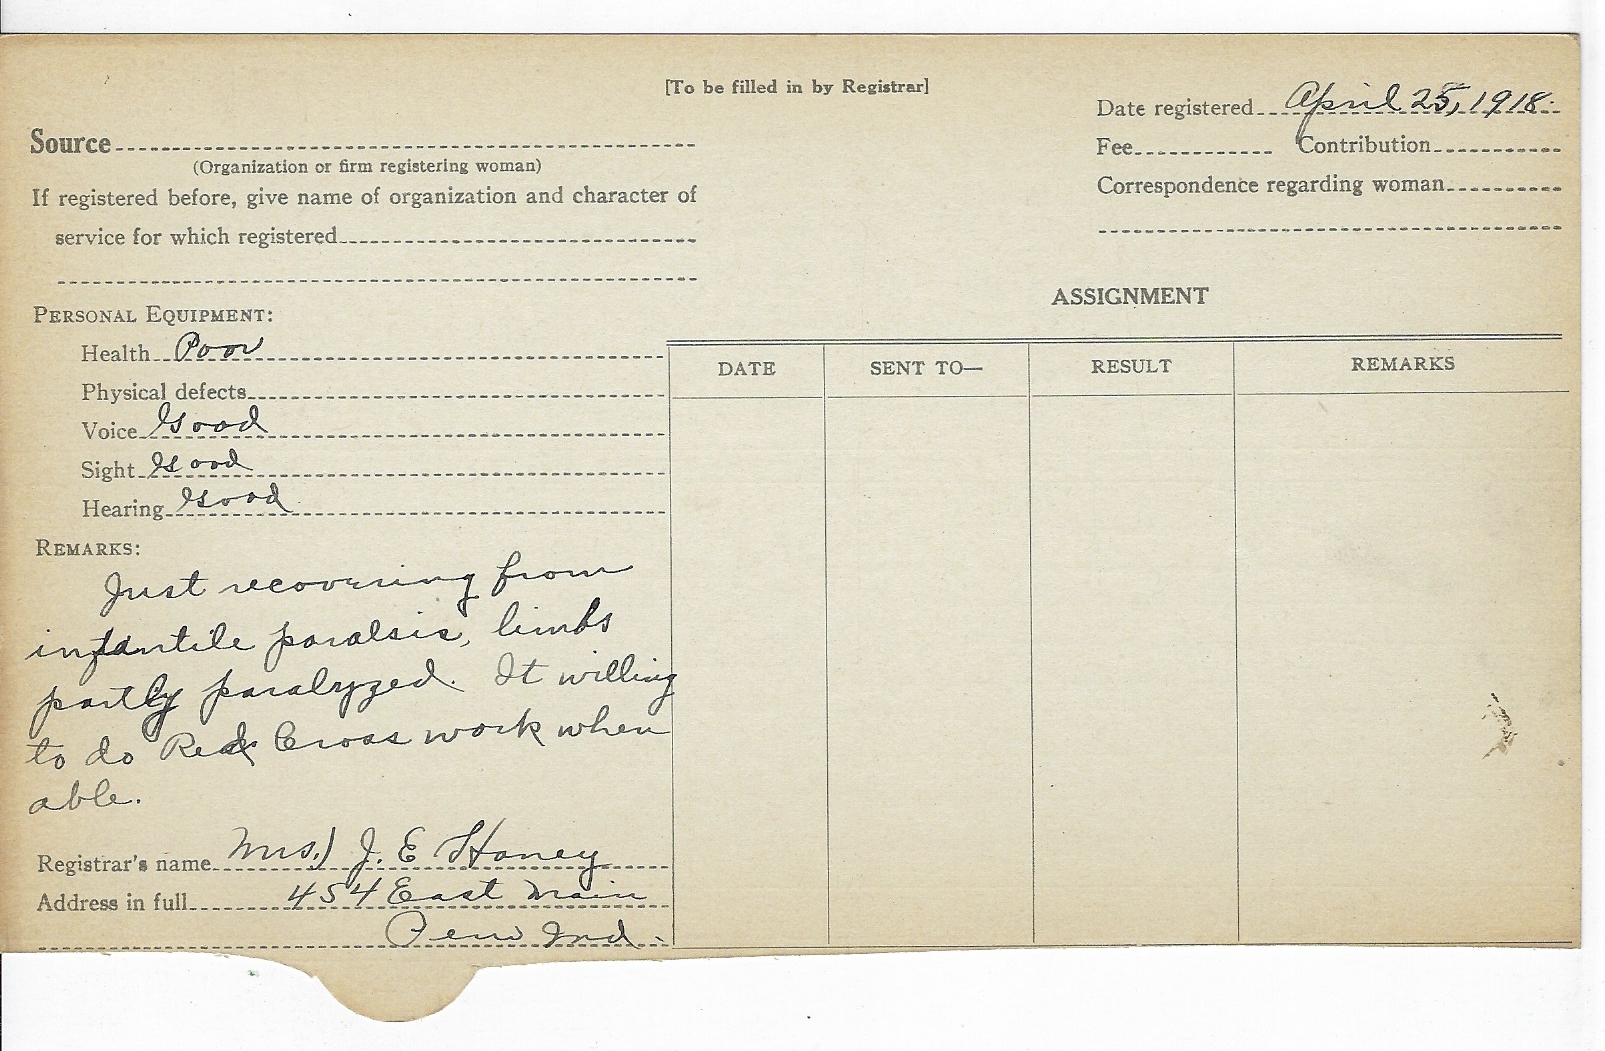 [To be filled in by Registrar]
Date registered April 25, 1918.
Source
(Organization or firm registering woman)
Fee Contribution
If registered before, give name of organization and character of
service for which registered
Correspondence regarding woman
ASSIGNMENT
PERSONAL EQUIPMENT:
Health Poor
Physical defects
Voice Good
Sight Good
Hearing Good
DATE SENT TO— RESULT REMARKS
REMARKS:
Just recovering from
infantile paralsis, limbs
partly paralyzed. It willing
to do Red Cross work when
able.
Registrar's name Mrs.) J. E Haney
Address in full 454 East Main
Peru Ind.